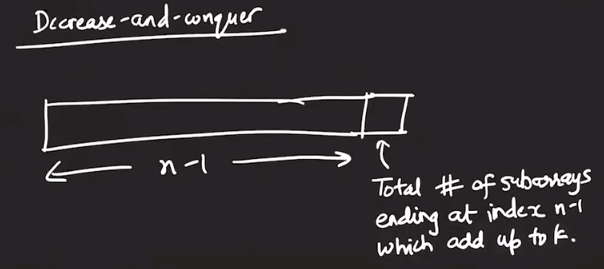 Decrease-and-conquer
n-1
Total # of subarrays
ending at index n-1
which add up to k.